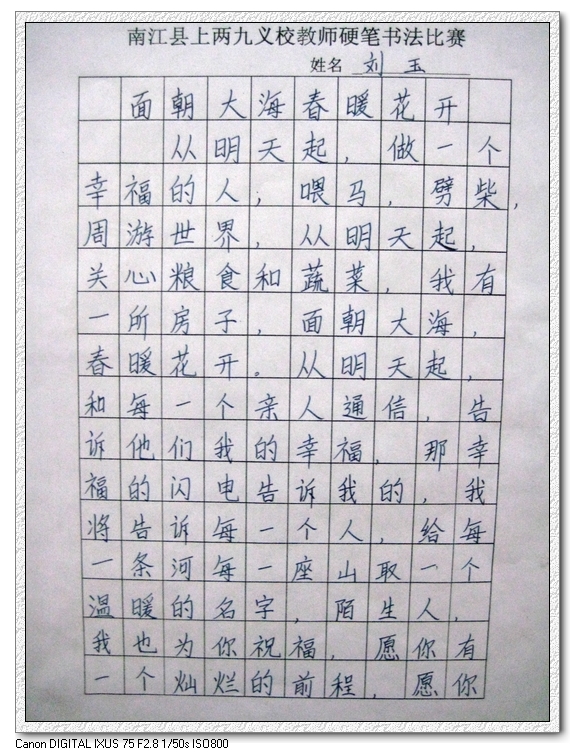 南江县上两九义校教师硬笔书法比赛
姓名 刘玉
面朝大海春暖花开
从明天起，做一个
幸福的人，喂马，劈柴，
周游世界，从明天起，
关心粮食和蔬菜，我有
一所房子，面朝大海，
春暖花开。从明天起，
和每一个亲人通信，告
诉他们我的幸福，那幸
福的闪电告诉我的，我
将告诉每一个人，给每
一条河每一座山取一个
温暖的名字，陌生人，
我也为你祝福，愿你有
一个灿烂的前程，愿你
Canon DIGITAL IXUS 75 F2.8 1/50s ISO800